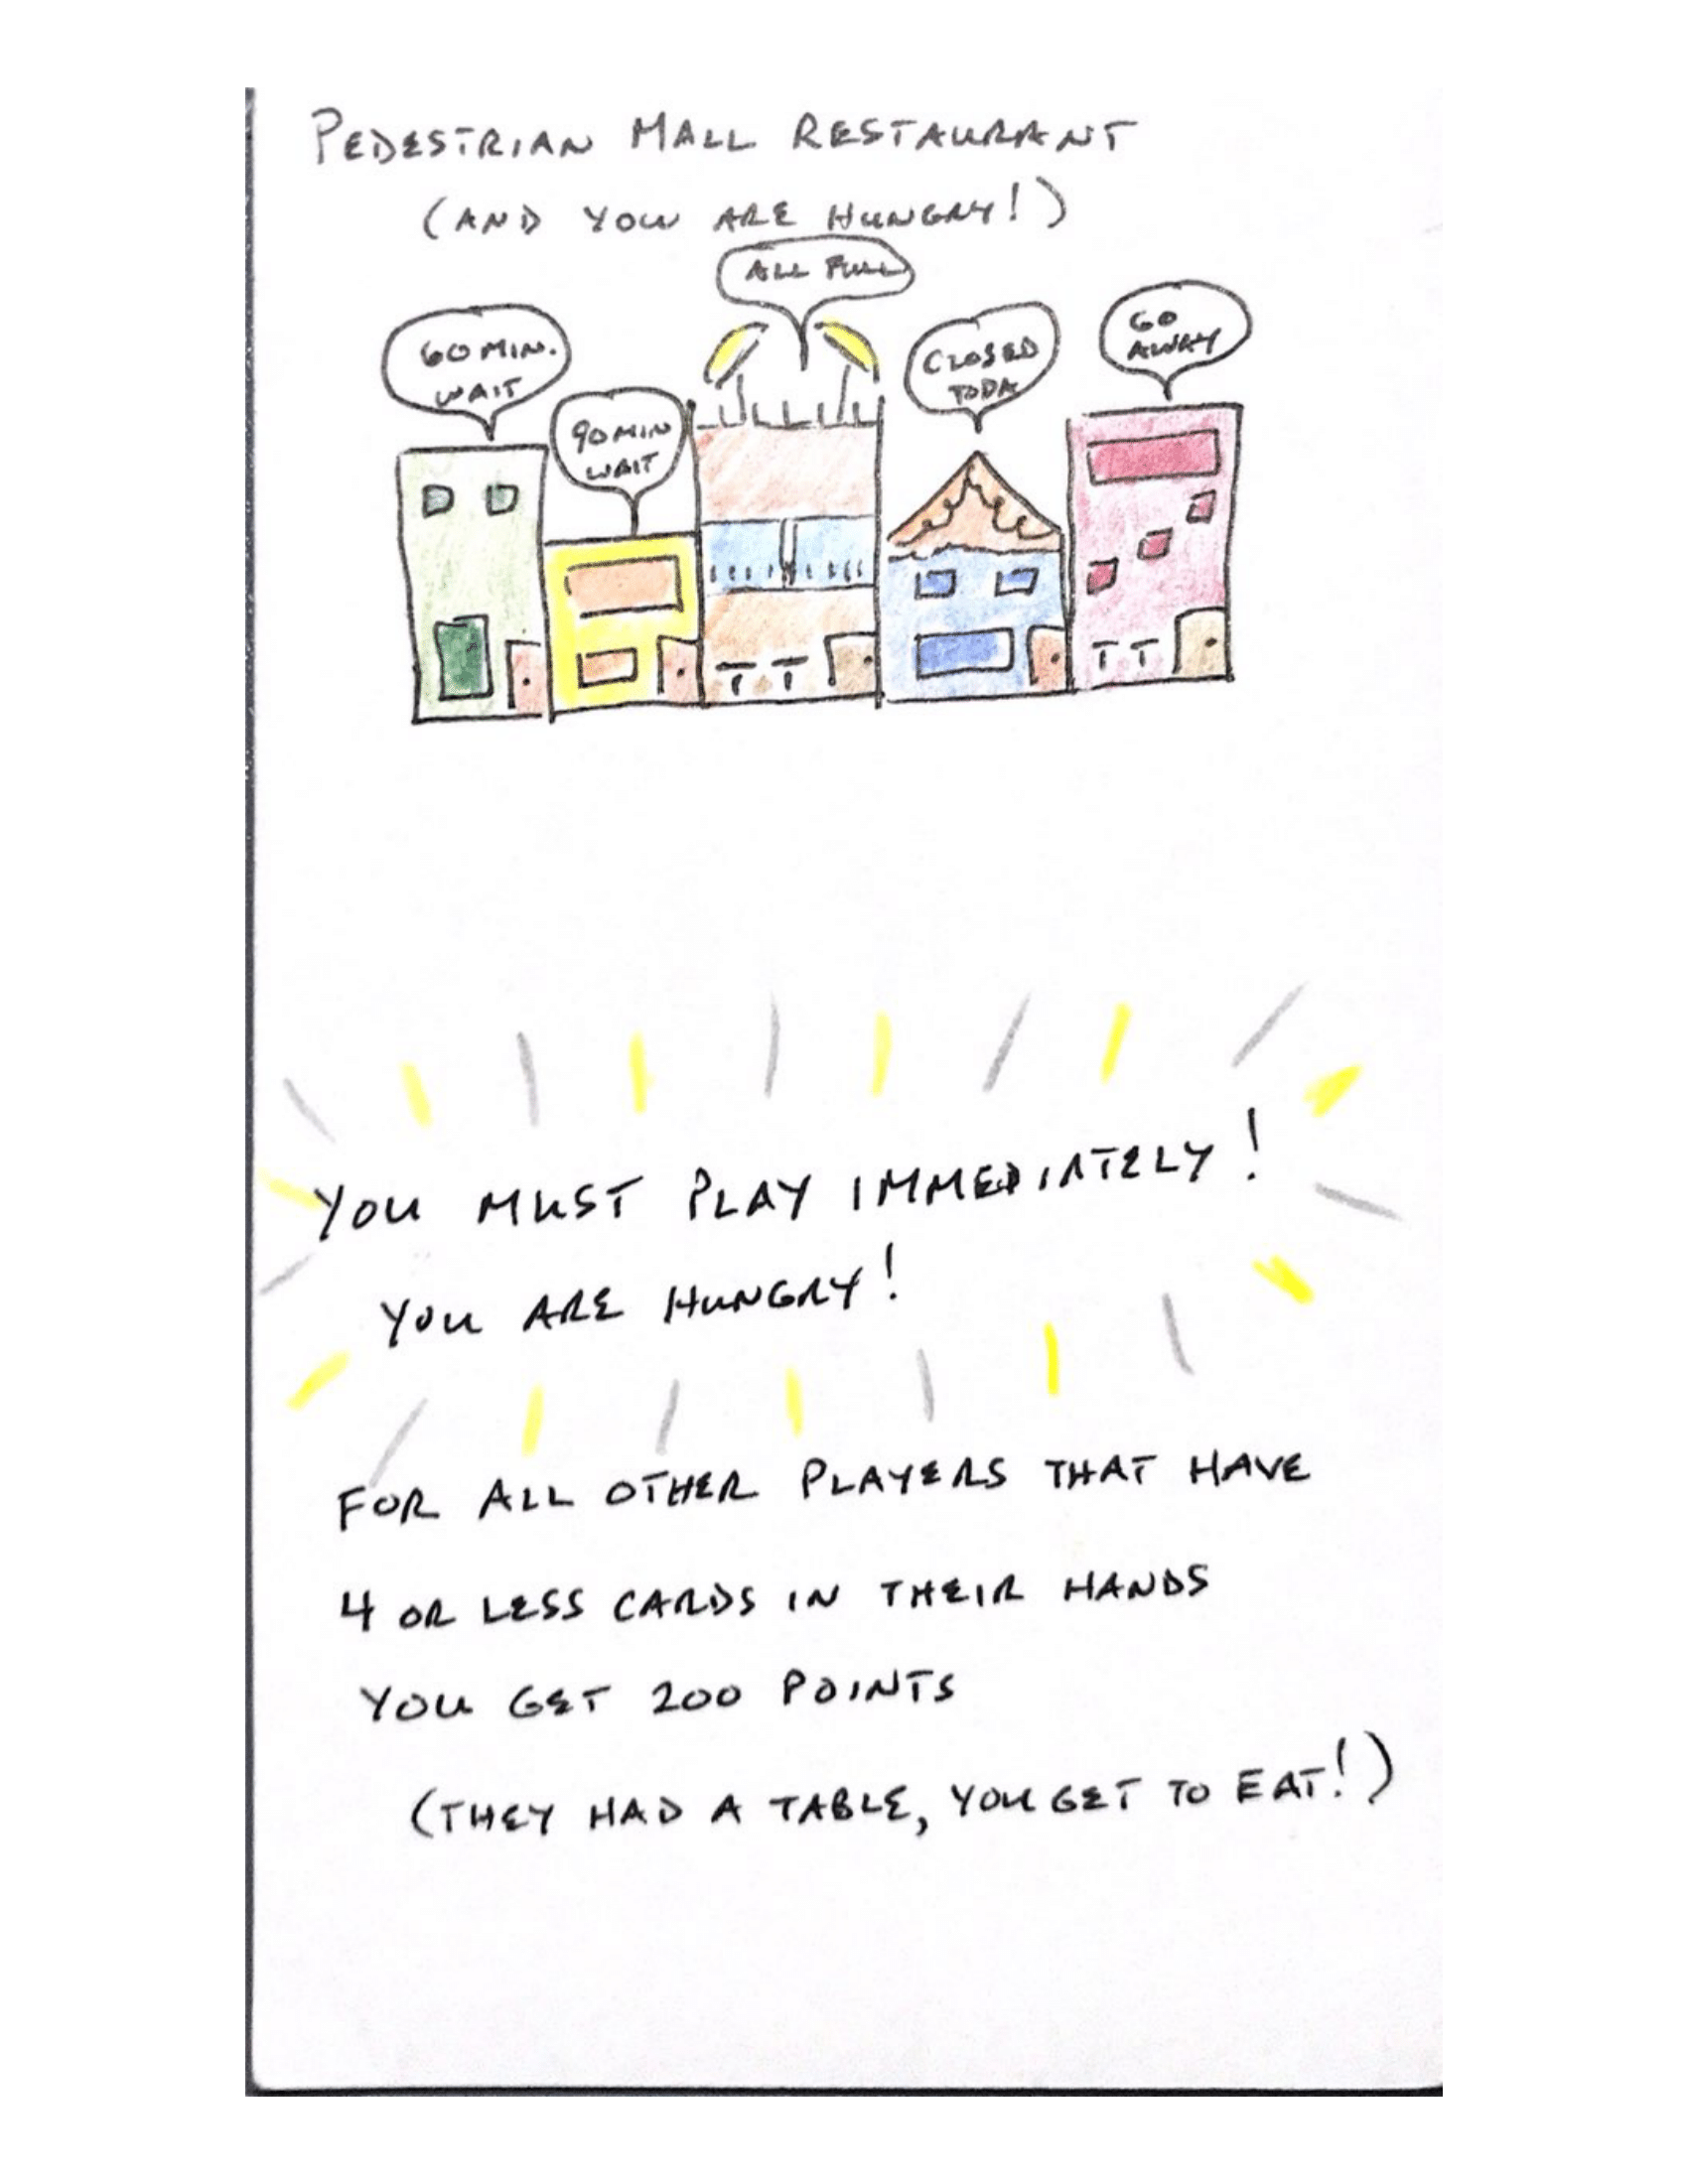 PEDESTRIAN MALL RESTAURANT
(AND YOU ARE HUNGRY!)
ALL FULL
60 MIN.
WAIT
90 MIN
WAIT
CLOSED
TODA
GO
AWAY
YOU MUST PLAY IMMEDIATELY!
YOU ARE HUNGRY!
FOR ALL OTHER PLAYERS THAT HAVE
4 OR LESS CARDS IN THEIR HANDS
YOU GET 200 POINTS
(THEY HAD A TABLE, YOU GET TO EAT!)